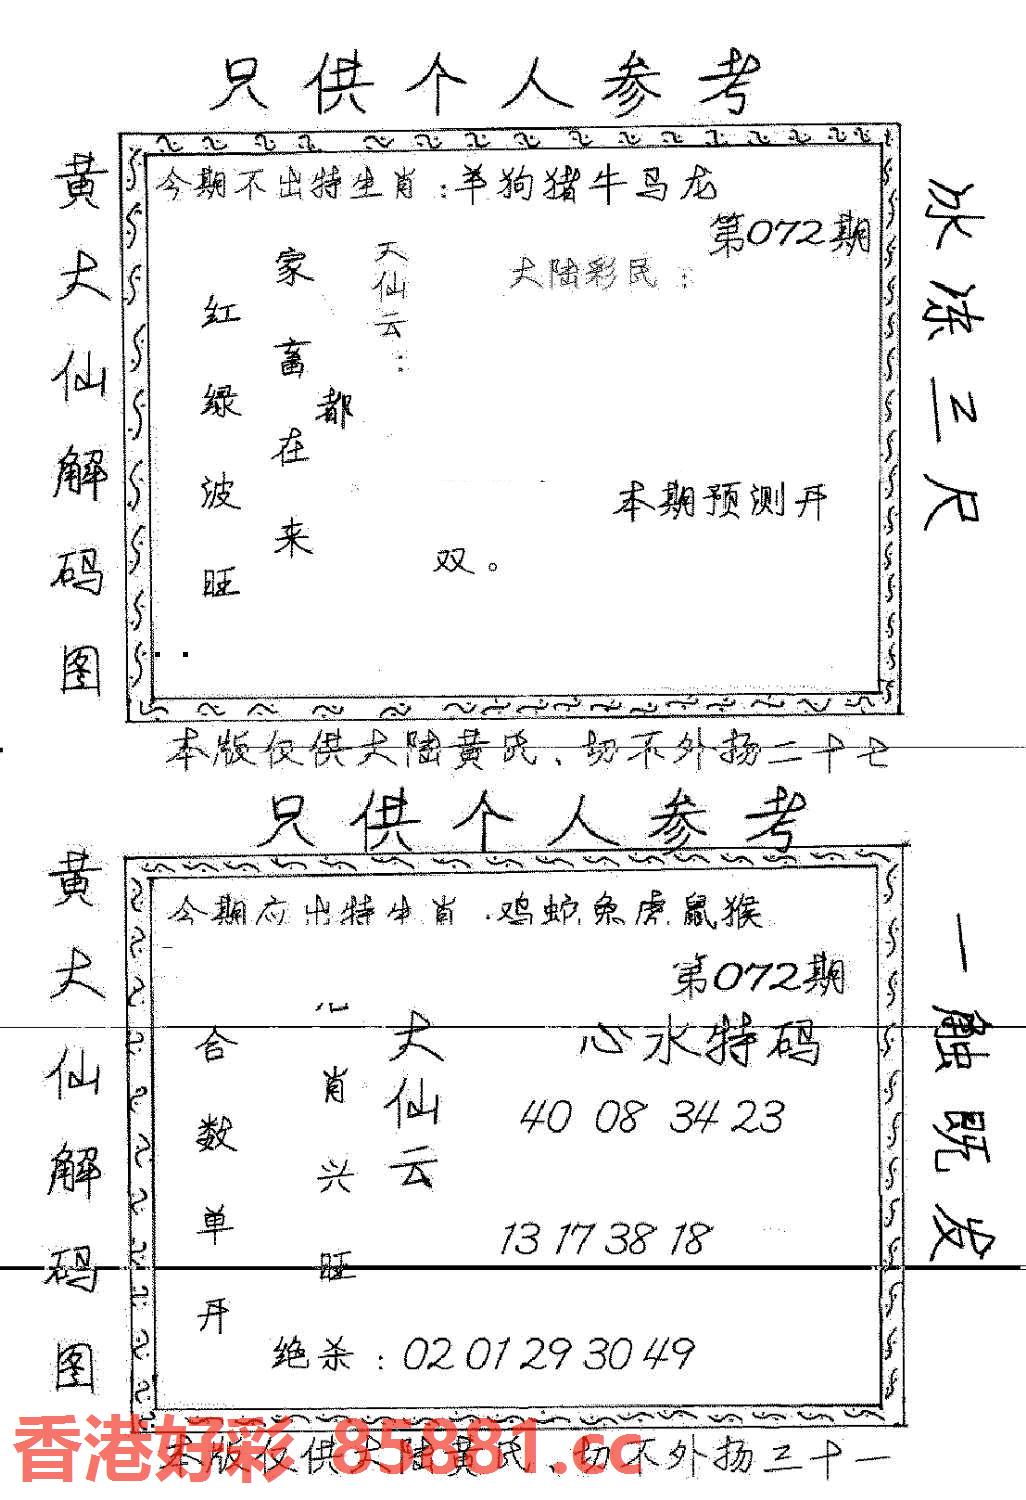 只供个人参考
黄大仙解码图
今期不出特生肖：羊狗猪牛马龙
第072期
大陆彩民：
天仙云：
家畜在来
都
红绿波旺
本期预测开
双。
冰冻三尺
本版仅供大陆黄氏、切不外扬二十七
只供个人参考
黄大仙解码图
今期应出特生肖.鸡蛇兔虎鼠猴
第072期
心水特码
40 08 34 23
13 17 38 18
大仙云
肖兴旺
合数单开
绝杀：02 01 29 30 49
一触既发
本版仅供大陆黄氏、切不外扬三十一
香港好彩 85881.cc